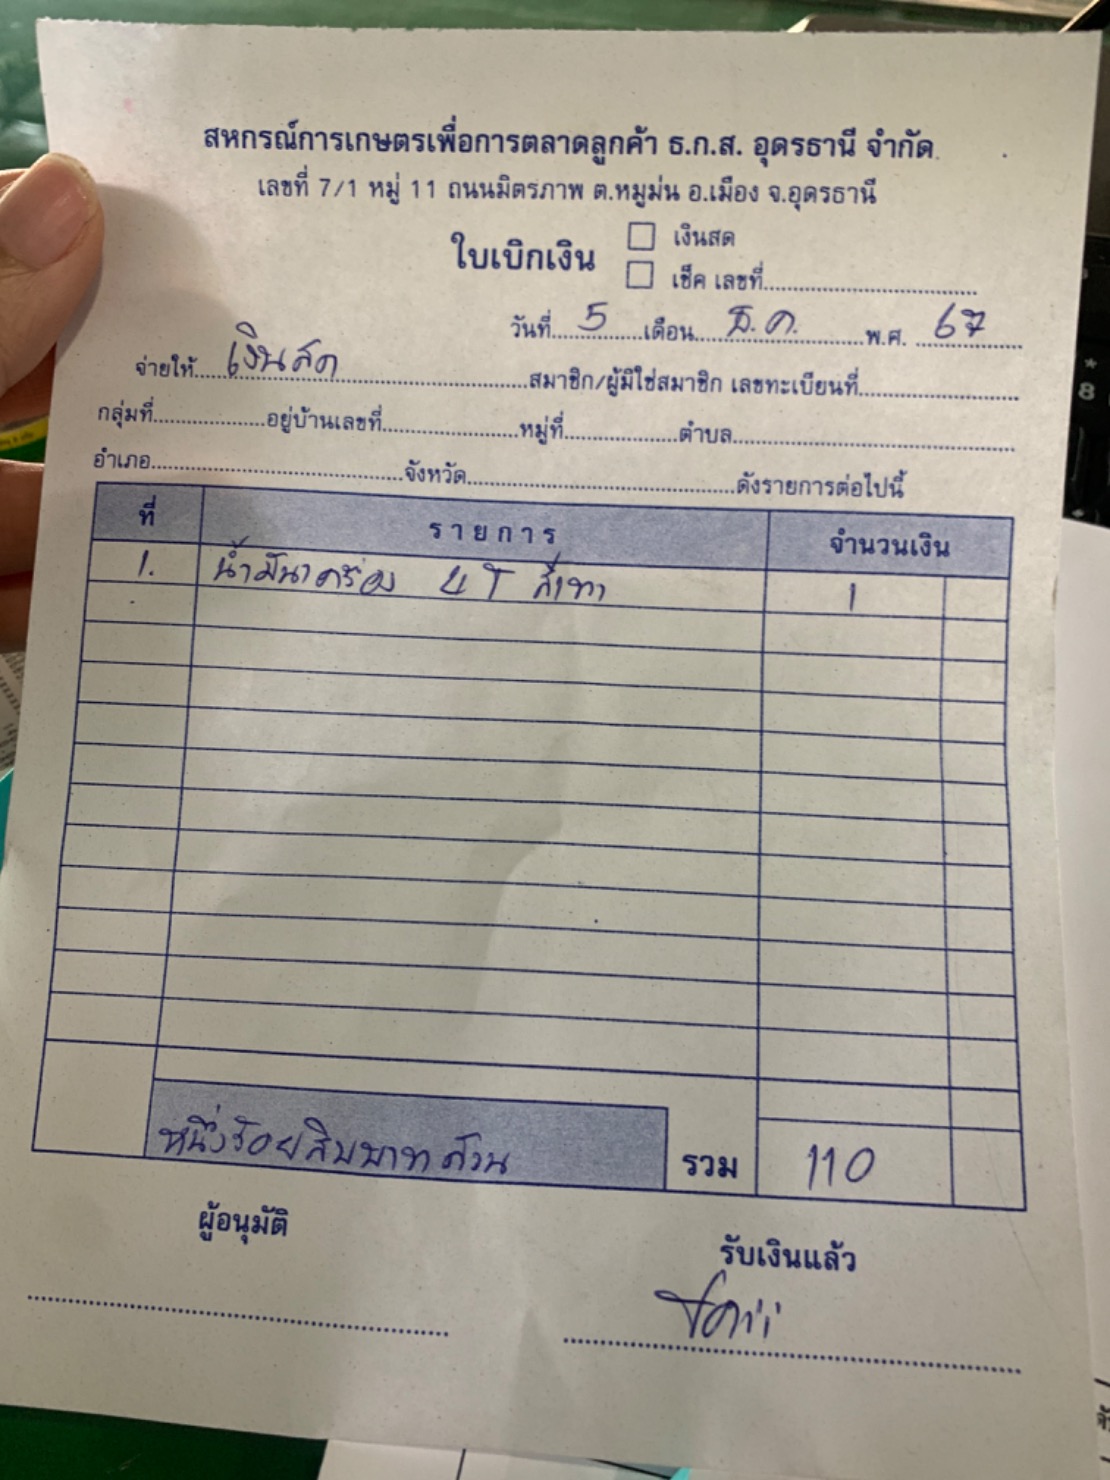 สหกรณ์การเกษตรเพื่อการตลาดลูกค้า ธ.ก.ส. อุดรธานี จำกัด
เลขที่ 7/1 หมู่ 11 ถนนมิตรภาพ ต.หมูม่น อ.เมือง จ.อุดรธานี
ใบเบิกเงิน
เงินสด
เช็ค เลขที่
วันที่ 5 เดือน ธ.ค. พ.ศ. 67
จ่ายให้ เงินสด สมาชิก/ผู้มิใช่สมาชิก เลขทะเบียนที่
กลุ่มที่ อยู่บ้านเลขที่ หมู่ที่ ตำบล
อำเภอ จังหวัด ดังรายการต่อไปนี้
ที่ รายการ จำนวนเงิน
1. น้ำมันเครื่อง 4T สีเทา 1
หนึ่งร้อยสิบบาทถ้วน รวม 110
ผู้อนุมัติ
รับเงินแล้ว